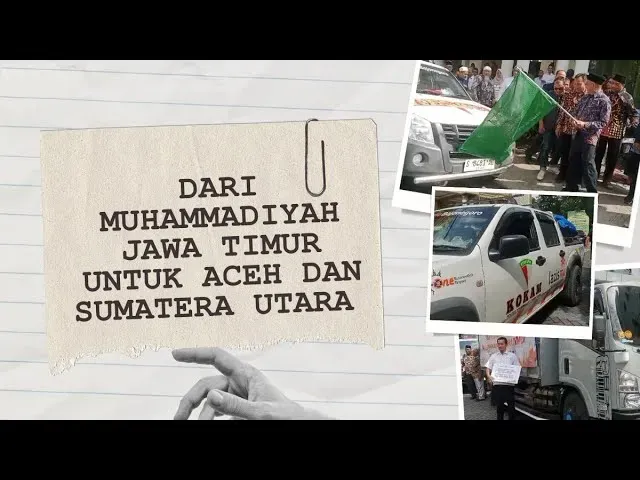 DARI
MUHAMMADIYAH
JAWA TIMUR
UNTUK ACEH DAN
SUMATERA UTARA
KOKAM